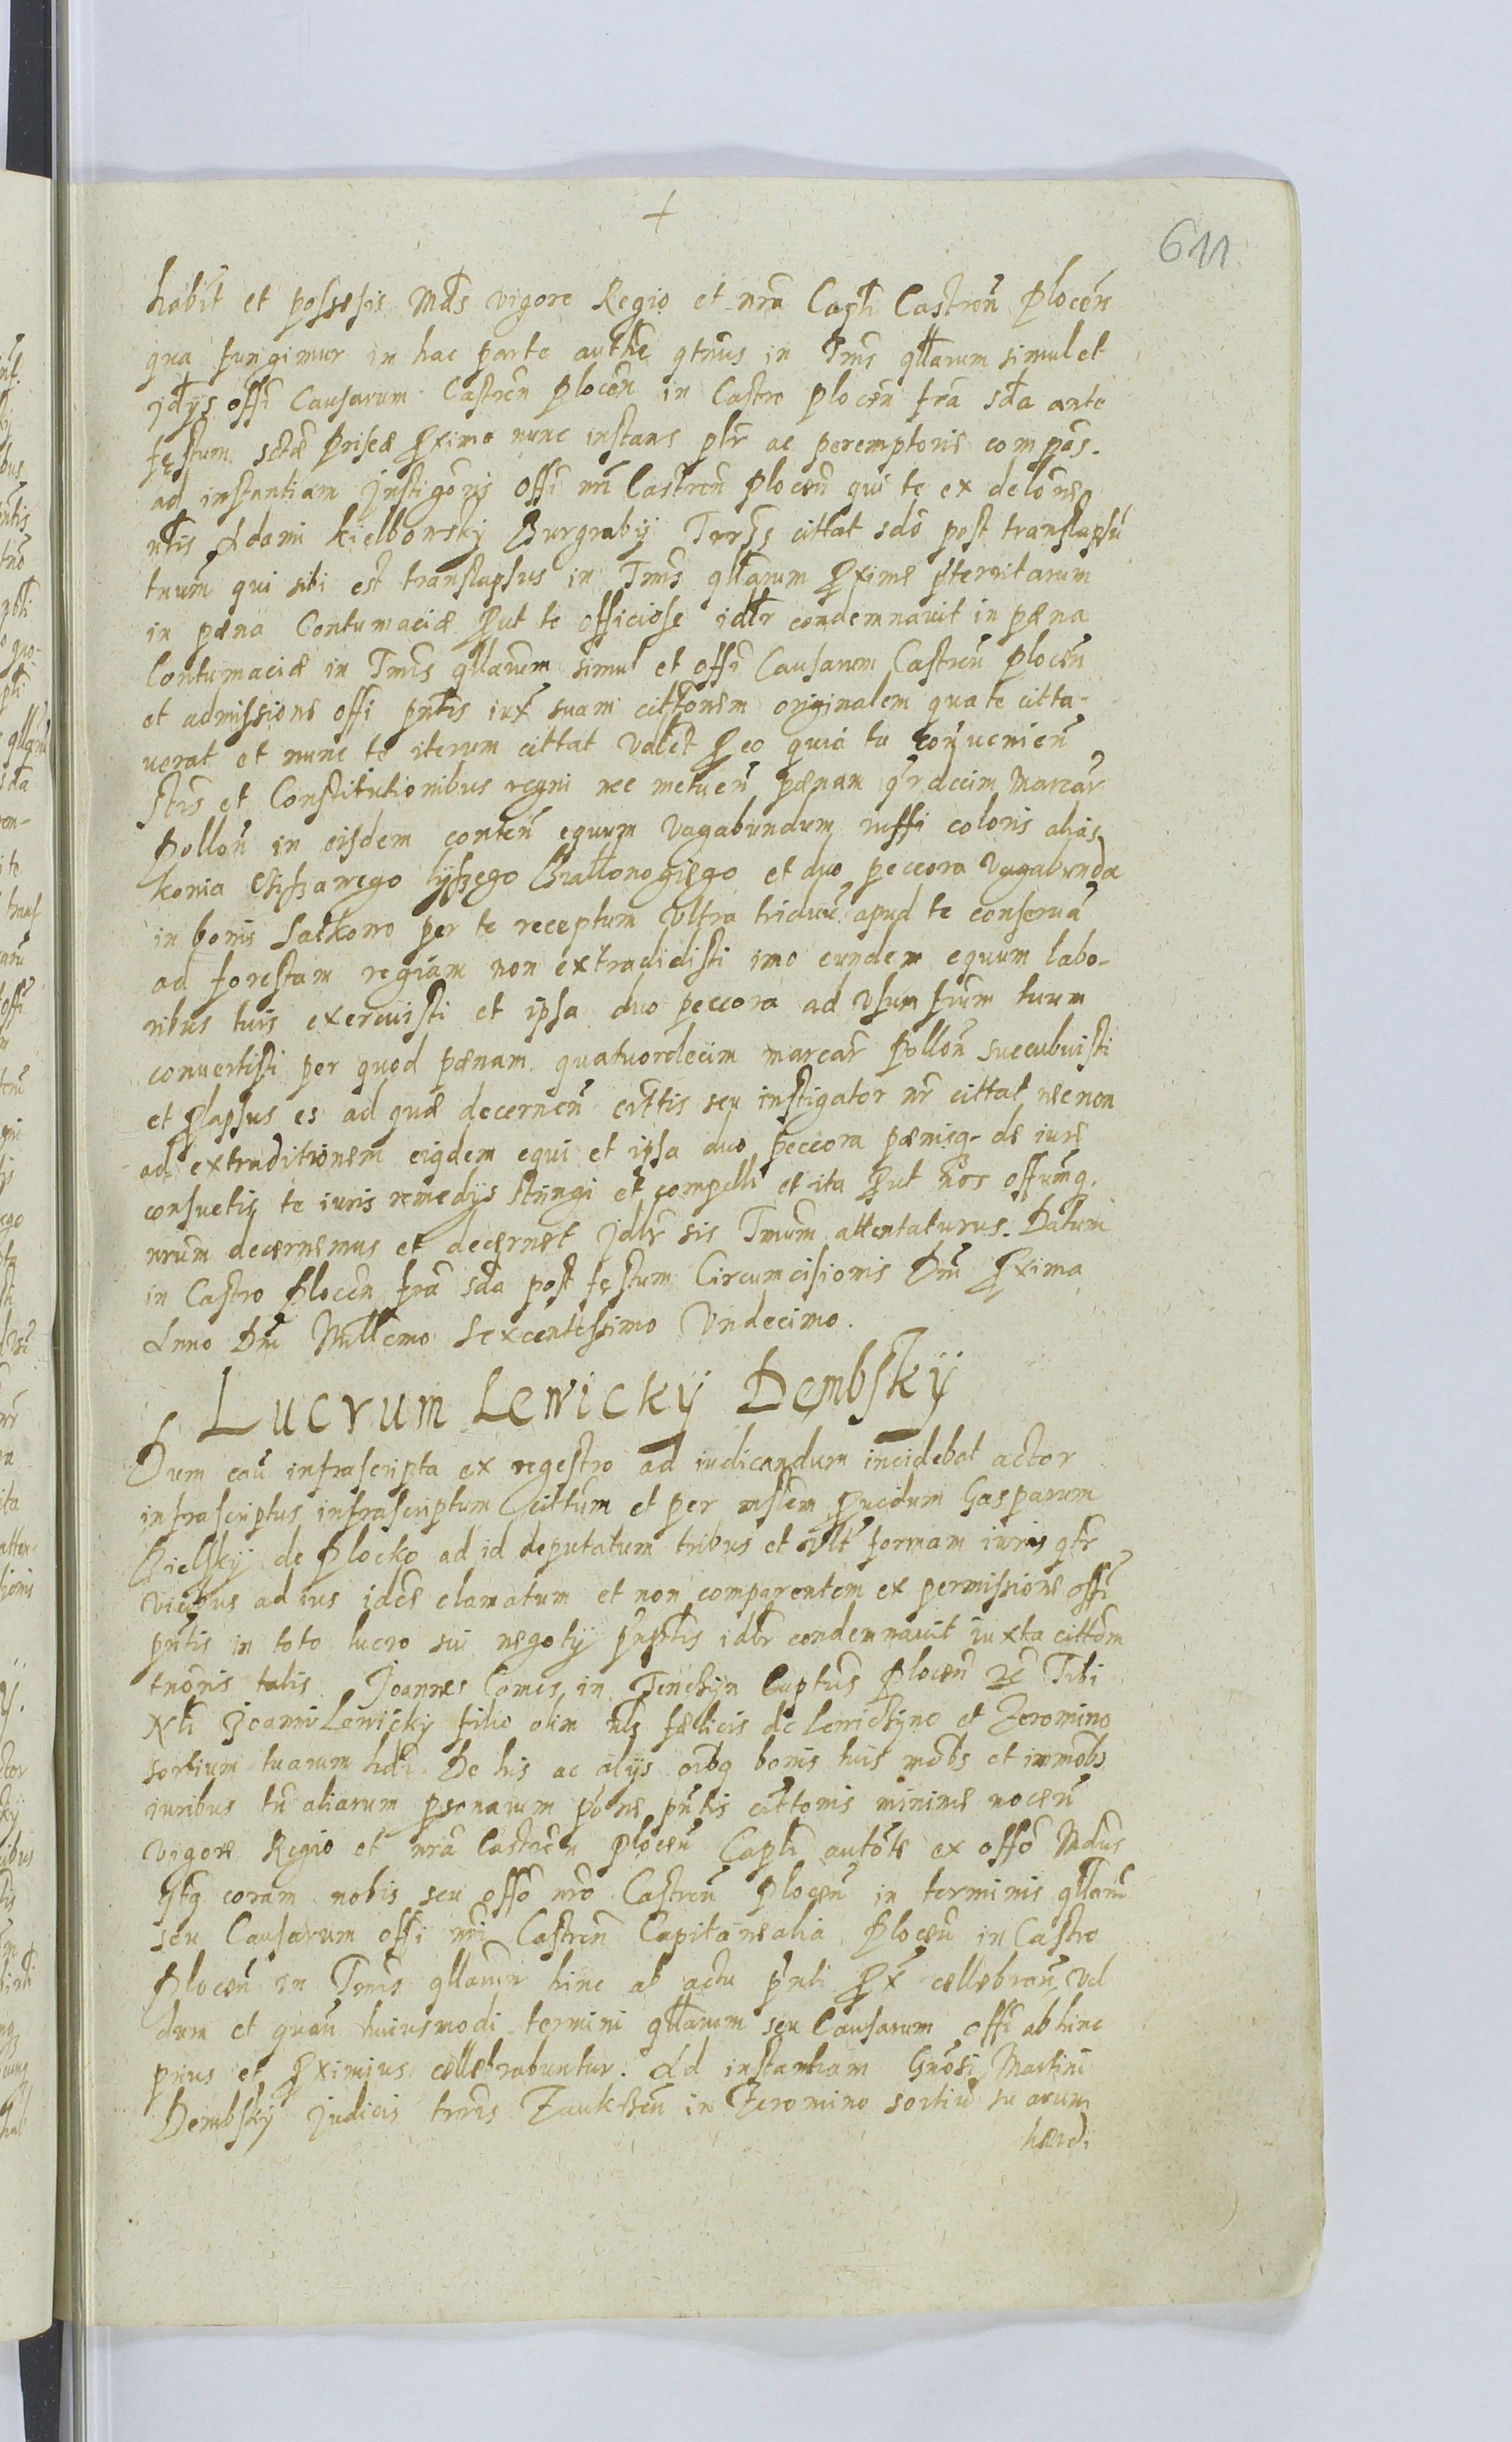 +
611
habit et possesis Mds vigore Regio et nra Capli Castren Plocen
qua fungimur in hac parte authe qtnus in Tmis qllarum simul et
jdijs offi Causarum Castren Plocen in Castro Plocen fra sda ante
festum sctae Priscae pxime nunc instans plr ac peremptorie compas.
ad instantiam Jnstigoris offi nri Castren Plocen qui te ex delone
nlis Adami Kielbowsky Burgrabij citat sdo post translapsu
tuum qui sibi est translapsus in Tmis qllarum pxime pteritarum
in paena Contumaciae put te officiose idlr condemnauit in paena
Contumaciae in Tmis qllarum simul et offi Causarum Castren Plocen
et admissione offi pntis iux suam cittonem originalem qua te citta-
uerat et nunc te iterum cittat valet p eo quia tu conuenien
sttis et Constitutionibus regni nec metuen paenam qrdecim Marcar
Pollon in eisdem conten equum Vagabundum ruffi coloris alias
konia Cisszawego lysszego Biallonogiego et duo peccora Vagabunda
in bonis Satkowo per te receptum Vltra triduu apud te conserua
ad forestam regiam non extradidisti imo eundem equum labo-
ribus tuis exercuisti et ipsa duo peccora ad Vsum suum tuum
conuertisti per quod paenam quatuordecim marcar Pollon succubuisti
et plapsus es ad quae decernen cittis seu instigator nr cittat necnon
ad extraditionem eiqdem equi et ipsa duo peccora paenisq de iure
consuetis te iuris remedijs stringi et compelli et ita put nos offumq
nrum decernemus et decernet Jdlr sis Tmum attentaturus. Datum
in Castro Plocen fra sda post festum Circumcisionis Dni pxima
Anno Dni Millemo Sexcentessimo Vndecimo.
Lucrum Lewicky Dembsky
Dum cau infrascripta ex regestro ad iudicandum incidebat actor
infrascriptus infrascriptum cittum et per mslem puidum Gasparum
Bielsky de Plocko ad id deputatum tribus et vlt formam iuris qtr
vicibus ad ius idce clamatum et non comparentem ex permissione offi
pntis in toto lucro sui negotij idlr condemnauit iuxta cittom
tnoris talis Joannes Comes in Tenchyn Captus Plocen Tibi
Nli Joanni Lewicky filio olim nlis faelicis de Lewichyno et Zeromino
sortium tuarum hdi De his ac alijs oibq bonis tuis mobs et immobs
iuribus tn aliarum psonarum pone pntis cittonis minime nocen
vigore Regio et nra Castren Plocen Capli autote ex offo Mdus
qtq coram nobis seu offo nro Castren Plocen in terminis qllarum
seu Causarum offi nri Castren Capitanealia Plocen in Castro
Plocen in Tmis qllarum hinc ab actu pnti px caellebran Vel
dum et quan huiusmodi termini qllarum seu Causarum offi abhinc
prius et pximius caellebrabuntur. Ad instantiam Gnosi Martini
Dembsky Judicis trris Zaukrzen in Zeromino sortiu suarum
haerdi